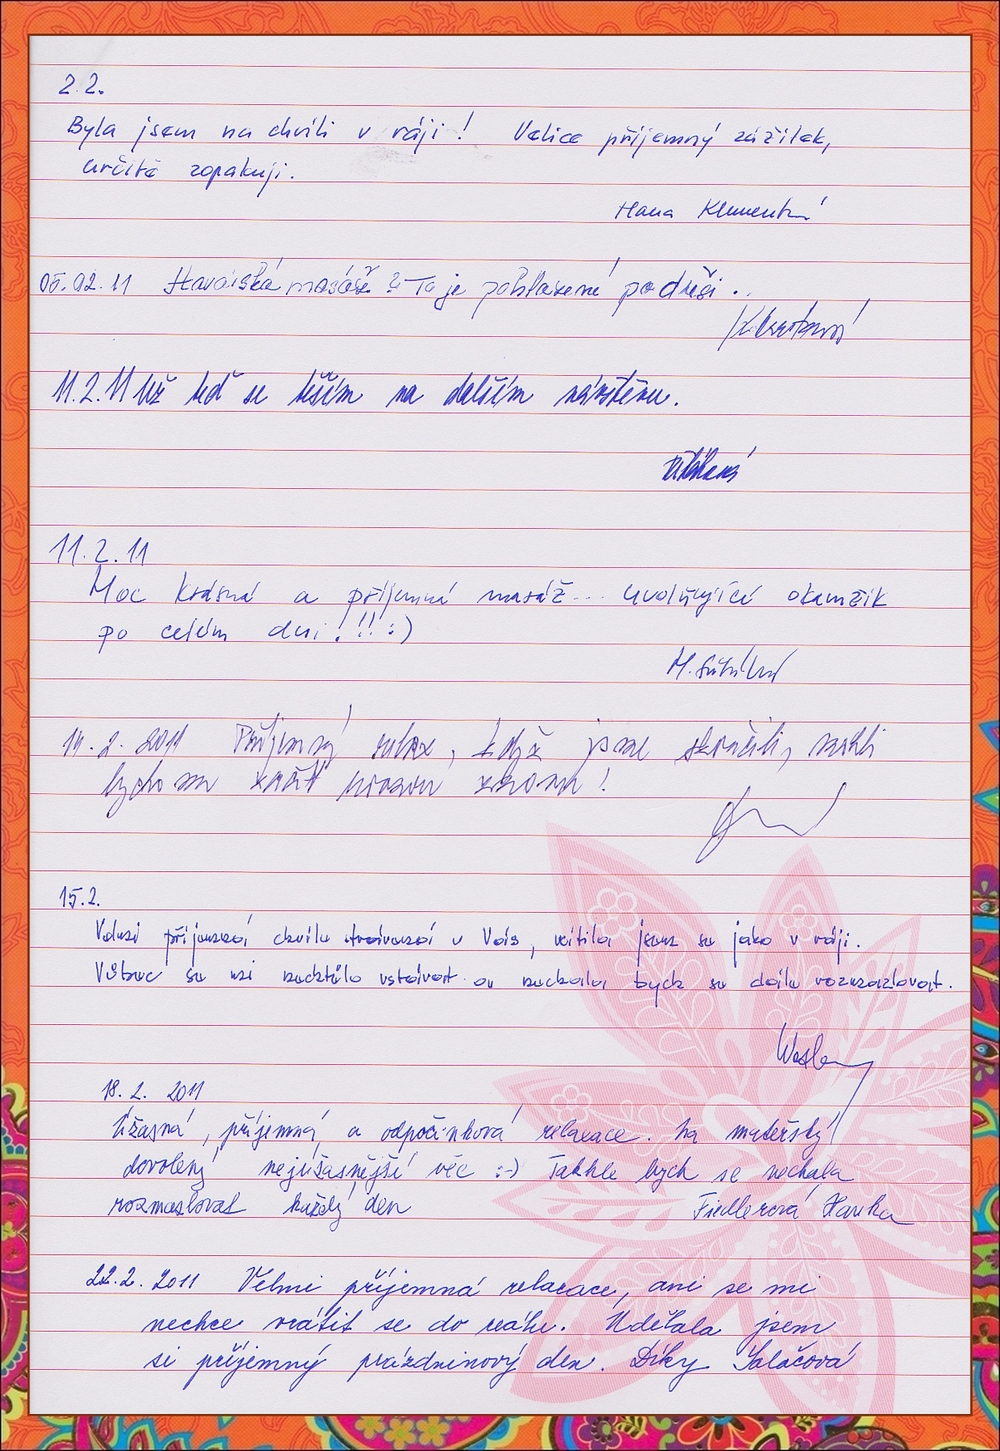 2.2.
Byla jsem na chvíli v ráji! Velice příjemný zážitek,
určitě zopakuji.
Hana
05.02.11 Havaiská masáže? To je pohlazení po duši..
11.2.11 Už teď se těším na další návštěvu.
11.2.11
Moc krásná a příjemná masáž... uvolňující okamžik
po celém dni!!! :)
14.2.2011 Příjemný relax, když jsme skončili, mohli
bychom začít znovu!
15.2.
Velmi příjemná chvíle strávená u Vás, cítila jsem se jako v ráji.
Vůbec se mi nechtělo vstávat a nechala bych se dále rozmazlovat.
18.2. 2011
Úžasná, příjemná a odpočinková relaxace. Na mateřský
dovolený nejúžasnější věc :-) Takhle bych se nechala
rozmazlovat každý den Fiedlerová Hanka
22.2.2011 Velmi příjemná relaxace, ani se mi
nechce vrátit se do reálu. Udělala jsem
si příjemný prázdninový den. Díky Salačová